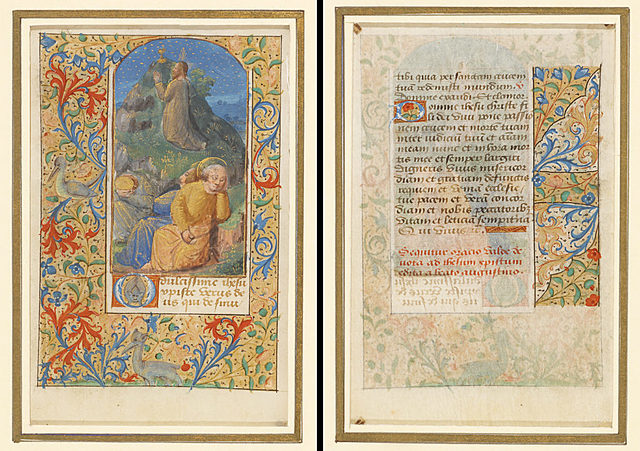 O dulcissime ihesu
xpiste verus de
us qui de sinu
tibi quia per sanctam crucem
tuā redemisti mundum. V
Domine exaudi. Et clamor
Domine ihesu christe fi
li dei vivi pone passio
nem crucem et mortē tuam
inter iudiciū tuū et aīam
meam nunc et in hora mor
tis mee et semper largiri
digneris vivis misericor
diam et gratiam defunctis
requiem et veniā ecclesie
tue pacem et verā concor
diam et nobis peccatoribꝫ
vitam et leticiā sempiternā
Qui vivis
Sequitur oracio valde de
vota ad ihesum xpistum
edita a beato augustino.